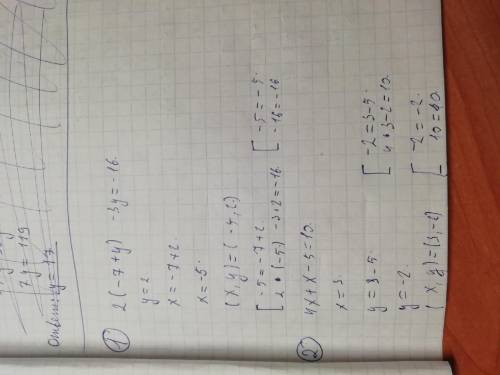 7y = 119
Ответ: y = 17
① 2(-7+y) -3y = -16.
y = 2
x = -7+2
x = -5.
(x, y) = (-5, 2)
[ -5 = -7+2 [ -5 = -5.
2 • (-5) -3•2 = -16. -16 = -16
② 4x + x - 5 = 10.
x = 3.
y = 3-5 [ -2 = 3-5.
y = -2 4•3-2 = 10.
(x, y) = (3, -2) [ -2 = -2.
10 = 10.